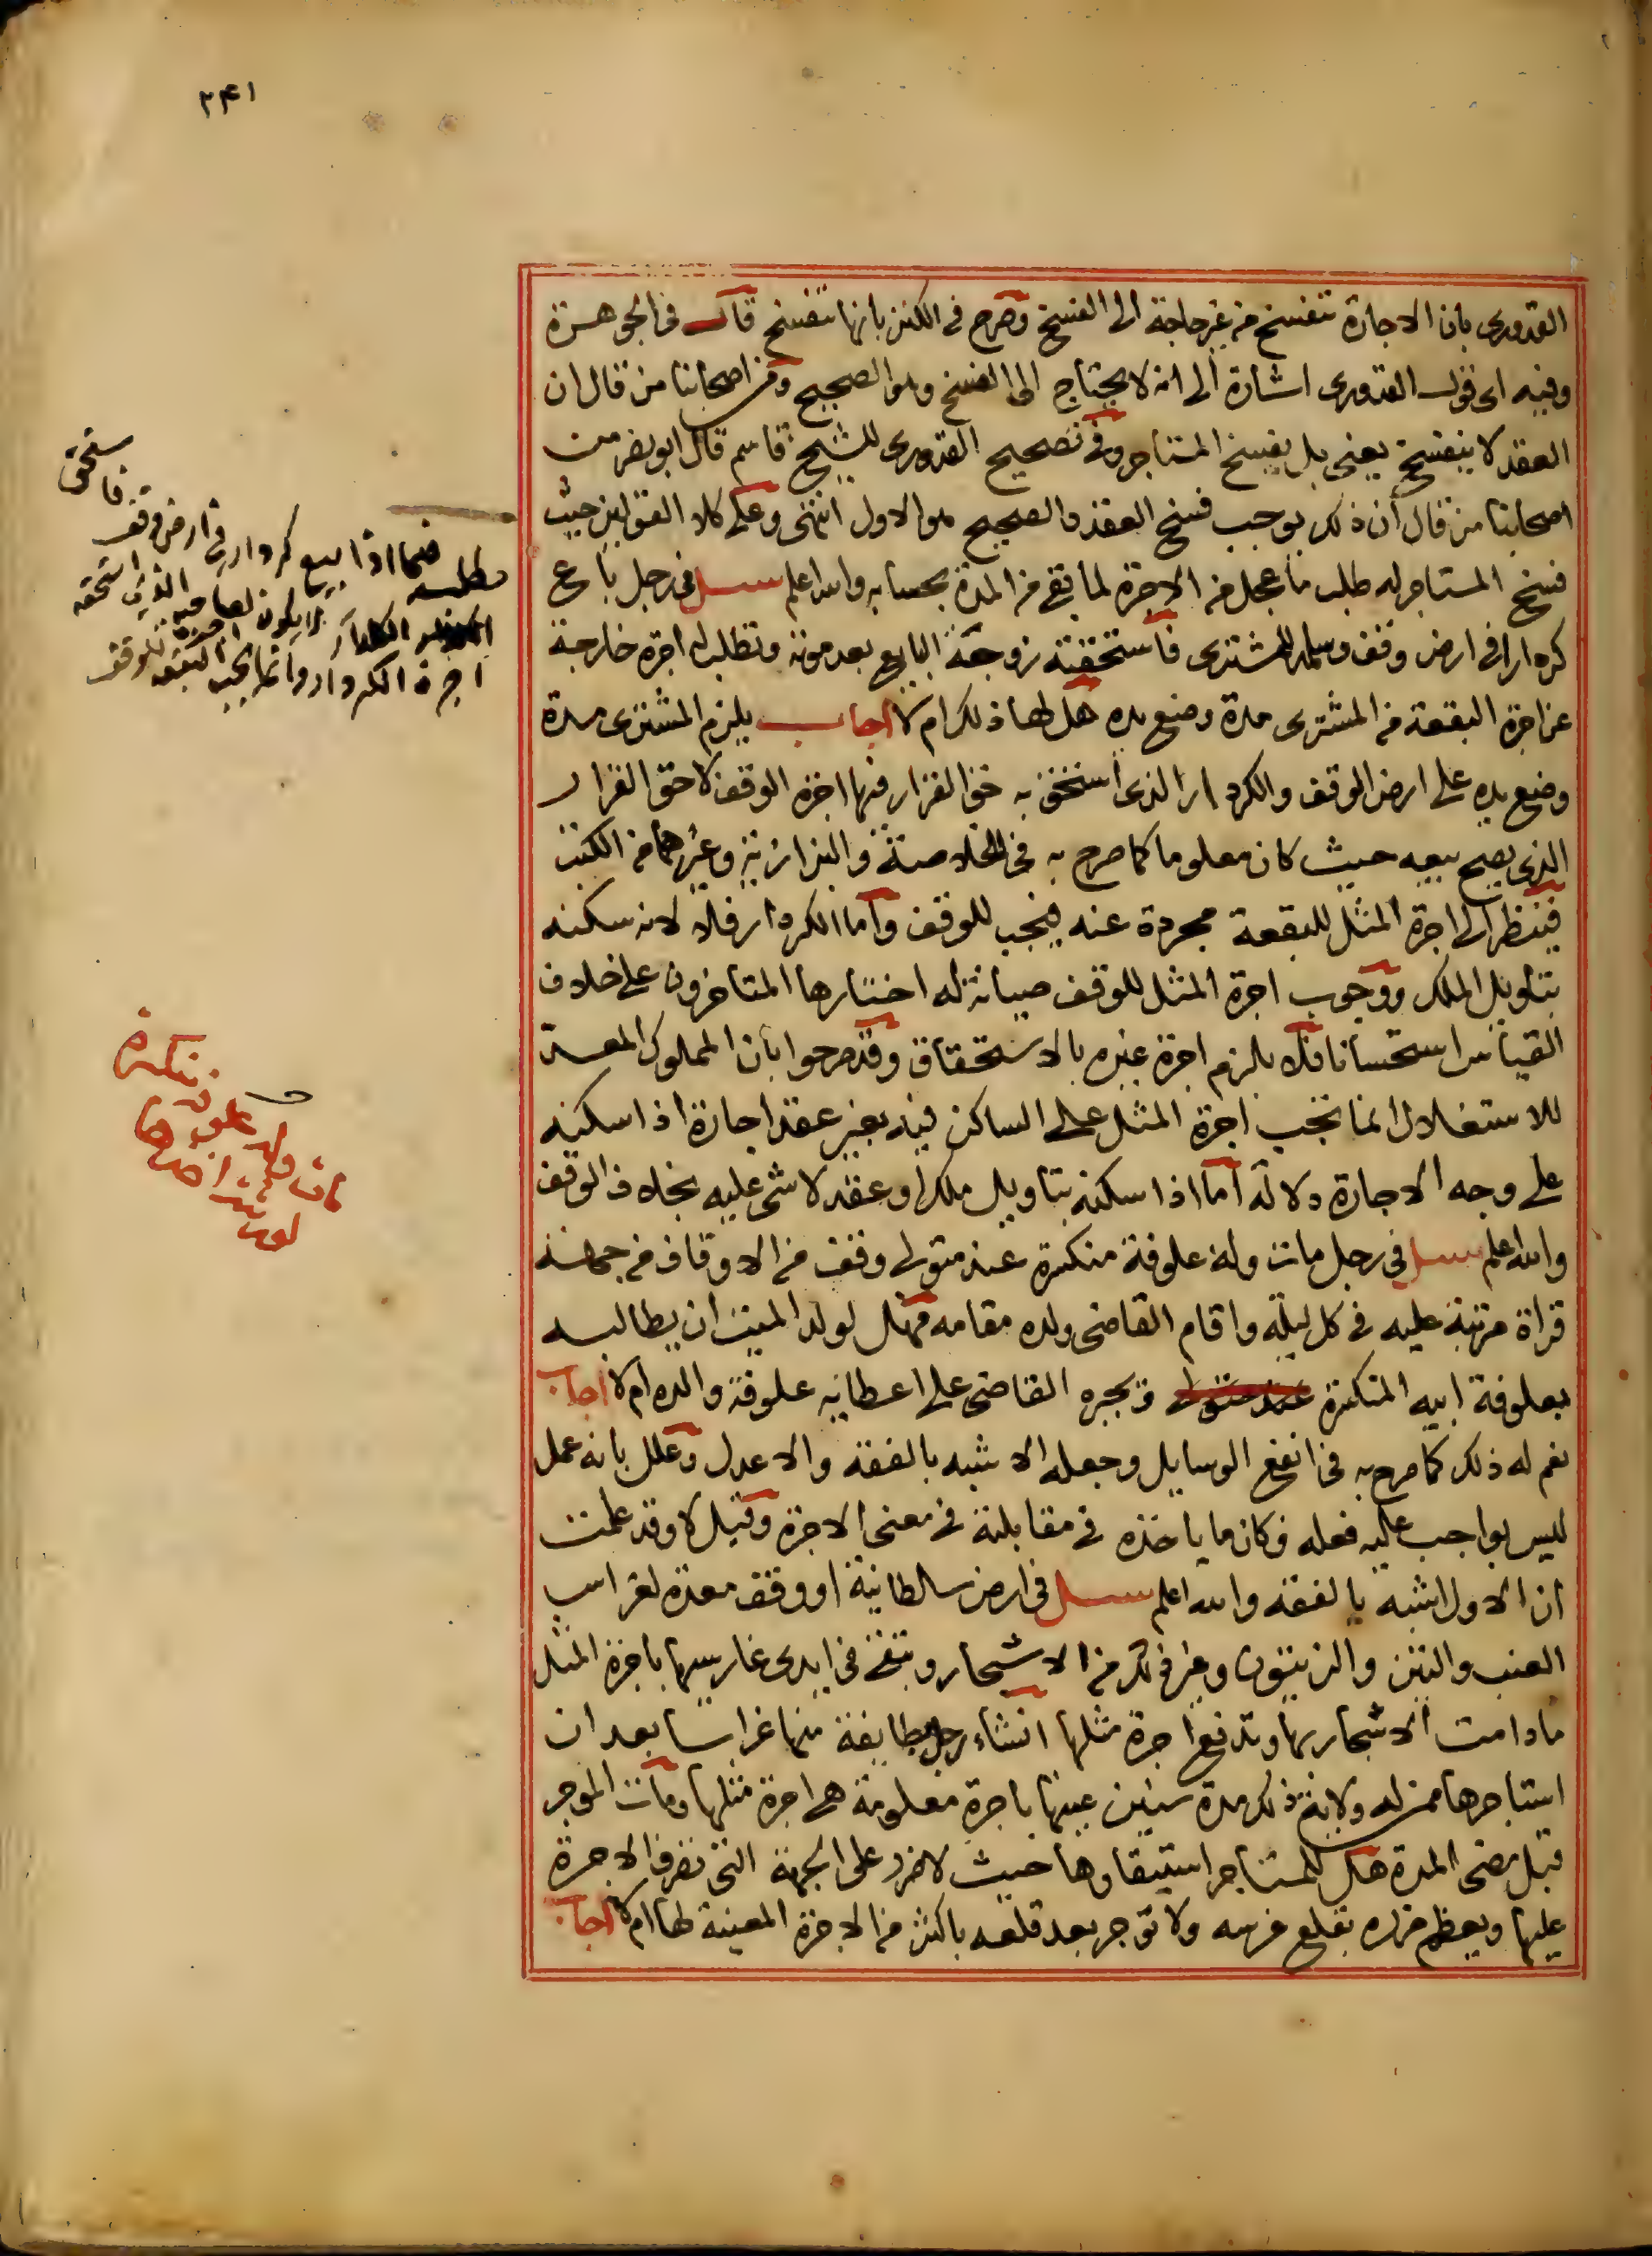 ٢٤١
القدورى بان الاجارة تنفسخ من غير حاجة الى الفسخ وصرح فى الكنز بانها تنفسخ قال فى الجوهرة
وفيه اى قول القدورى اشارة الى انه لا يحتاج الى الفسخ وهو الصحيح ومن اصحابنا من قال ان
العقد لا ينفسخ يعنى بل يفسخ المستاجر وفى تصحيح القدورى للشيخ قاسم قال ابو نصر من
اصحابنا من قال ان ذلك يوجب فسخ العقد والصحيح هو الاول انتهى وعلى كلا القولين حيث
فسخ المستاجر له طلب ما عجل من الاجرة لما بقى من المدة بحسابه والله اعلم سئل فى رجل باع
كردارا فى ارض وقف وسلمه للمشترى فاستحقته زوجة البايع بعد موته وتطلب اجرة خارجة
عن اجرة البقعة من المشترى مدة وضع يده هل لها ذلك ام لا اجاب يلزم المشترى مدة
وضع يده على ارض الوقف والكردار الذى استحق به حق القرار فيها اجرة الوقف لا حق القرار
الذى يصح بيعه حيث كان معلوما كما صرح به فى الخلاصة والبزازية وغيرهما من الكتب
فينظر الى اجرة المثل للبقعة مجردة عنه فيجب للوقف واما الكردار فلا لانه سكنه
بتاويل الملك ووجوب اجرة المثل للوقف صيانة له اختارها المتاخرون على خلاف
القياس استحسانا فلا يلزم اجرة غيره بالاستحقاق وقد صرحوا بان المملوك المعد
للاستغلال انما تجب اجرة المثل على الساكن فيه بغير عقد اجارة اذا سكنه
على وجه الاجارة دلالة اما اذا سكنه بتاويل ملك او عقد لا شى عليه بخلاف الوقف
والله اعلم سئل فى رجل مات وله علوفة منكسرة عند متولى وقف من الاوقاف من جهة
قراة مرتبة عليه فى كل ليلة واقام القاضى ولده مقامه فهل لولد الميت ان يطالبه
بعلوفة ابيه المنكسرة ويجبره القاضى على اعطايه علوفة والده ام لا اجاب
نعم له ذلك كما صرح به فى انفع الوسايل وجعله الاشبه بالفقه والاعدل وعلل بانه عمل
ليس بواجب عليه فعله فكان ما ياخذه فى مقابلته فى معنى الاجرة وقيل لا وقد علمت
ان الاول اشبه بالفقه والله اعلم سئل فى ارض سلطانية او وقف معدة لغراس
العنب والتين والزيتون وغير ذلك من الاشجار وتبقى فى ايدى غارسيها باجرة المثل
ما دامت الاشجار بها وتدفع اجرة مثلها انشاء رجل بطايفة منها غراسا بعد ان
استاجرها ممن له ولاية ذلك مدة سنين عينها باجرة معلومة هى اجرة مثلها ومات الموجر
قبل مضى المدة هل للمستاجر استبقاوها حيث لا ضرر على الجهة التى تصرف الاجرة
عليها ويعظم ضرره بقلع غرسه ولا توجر بعد قلعه باكثر من الاجرة المعينة لها ام لا اجاب
مطلب
فيما اذا بيع كردار فى ارض وقف
فاستحق
لا يكون لصاحبه الذى استحقه
اجرة الكردار وانما تجب اجرة البقعة للوقف
مات وله علوفة منكسرة
لولده اخذها